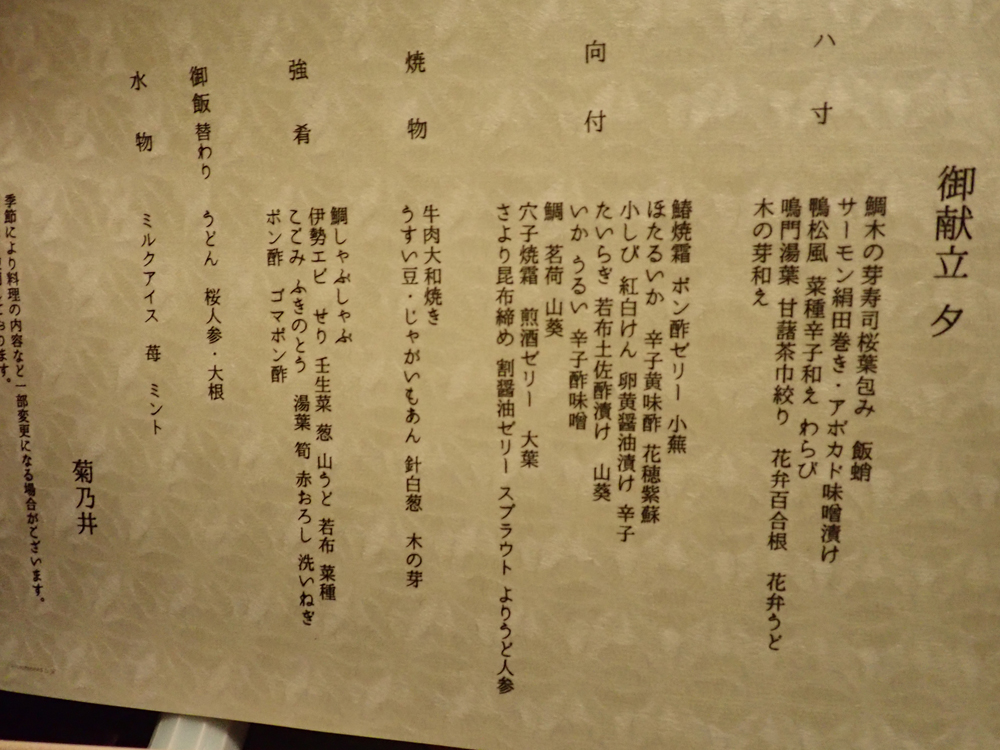 御献立 夕
八寸
鯛木の芽寿司桜葉包み 飯蛸
サーモン絹田巻き・アボカド味噌漬け
鴨松風 菜種辛子和え わらび
鳴門湯葉 甘藷茶巾絞り 花弁百合根 花弁うど
木の芽和え
向付
鰆焼霜 ポン酢ゼリー 小蕪
ほたるいか 辛子黄味酢 花穂紫蘇
小しび 紅白けん 卵黄醤油漬け 辛子
たいらぎ 若布土佐酢漬け 山葵
いか うるい 辛子酢味噌
鯛 茗荷 山葵
穴子焼霜 煎酒ゼリー 大葉
さより昆布締め 割醤油ゼリー スプラウト よりうど人参
焼物
牛肉大和焼き
うすい豆・じゃがいもあん 針白葱 木の芽
強肴
鯛しゃぶしゃぶ
伊勢エビ せり 壬生菜 葱 山うど 若布 菜種
こごみ ふきのとう 湯葉 筍 赤おろし 洗いねぎ
ポン酢 ゴマポン酢
御飯替わり
うどん 桜人参・大根
水物
ミルクアイス 苺 ミント
菊乃井
季節により料理の内容など一部変更になる場合がございます。
ております。